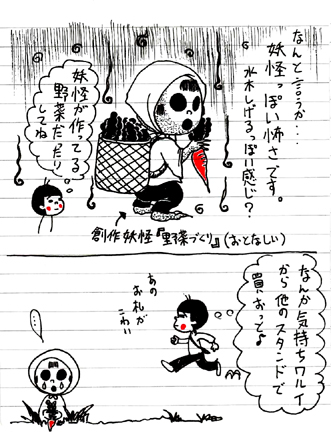 なんと言うか・・・
妖怪っぽい怖さです。
水木しげるっぽい感じ？
妖怪が作ってる
野菜だったり
してね
創作妖怪『野菜づくり』(おとなしい)
なんか気持ちワルイ
から他のスタンドで
買おっと♪
あの
お札が
こわい
・・・